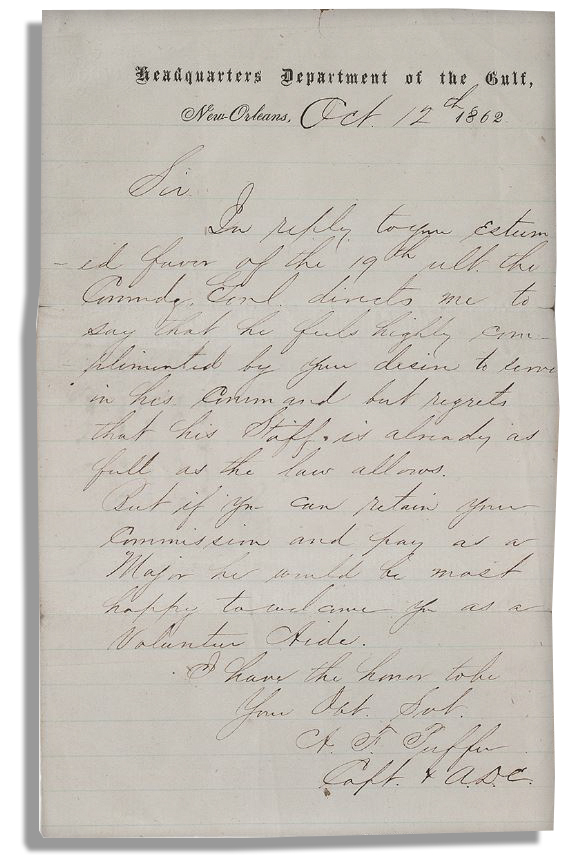 Headquarters Department of the Gulf,
New-Orleans, Oct. 12th 1862.
Sir.
In reply to your esteem
-ed favor of the 19th ult. the
Commdg. Genl. directs me to
say that he feels highly com-
-plimented by your desire to serve
in his command but regrets
that his Staff. is already as
full as the law allows.
But if you can retain your
Commission and pay as a
Major he would be most
happy to welcome you as a
Volunteer Aide.
I have the honor to be
Your Obt. Svt.
A. F. Puffer
Capt. & A.D.C.